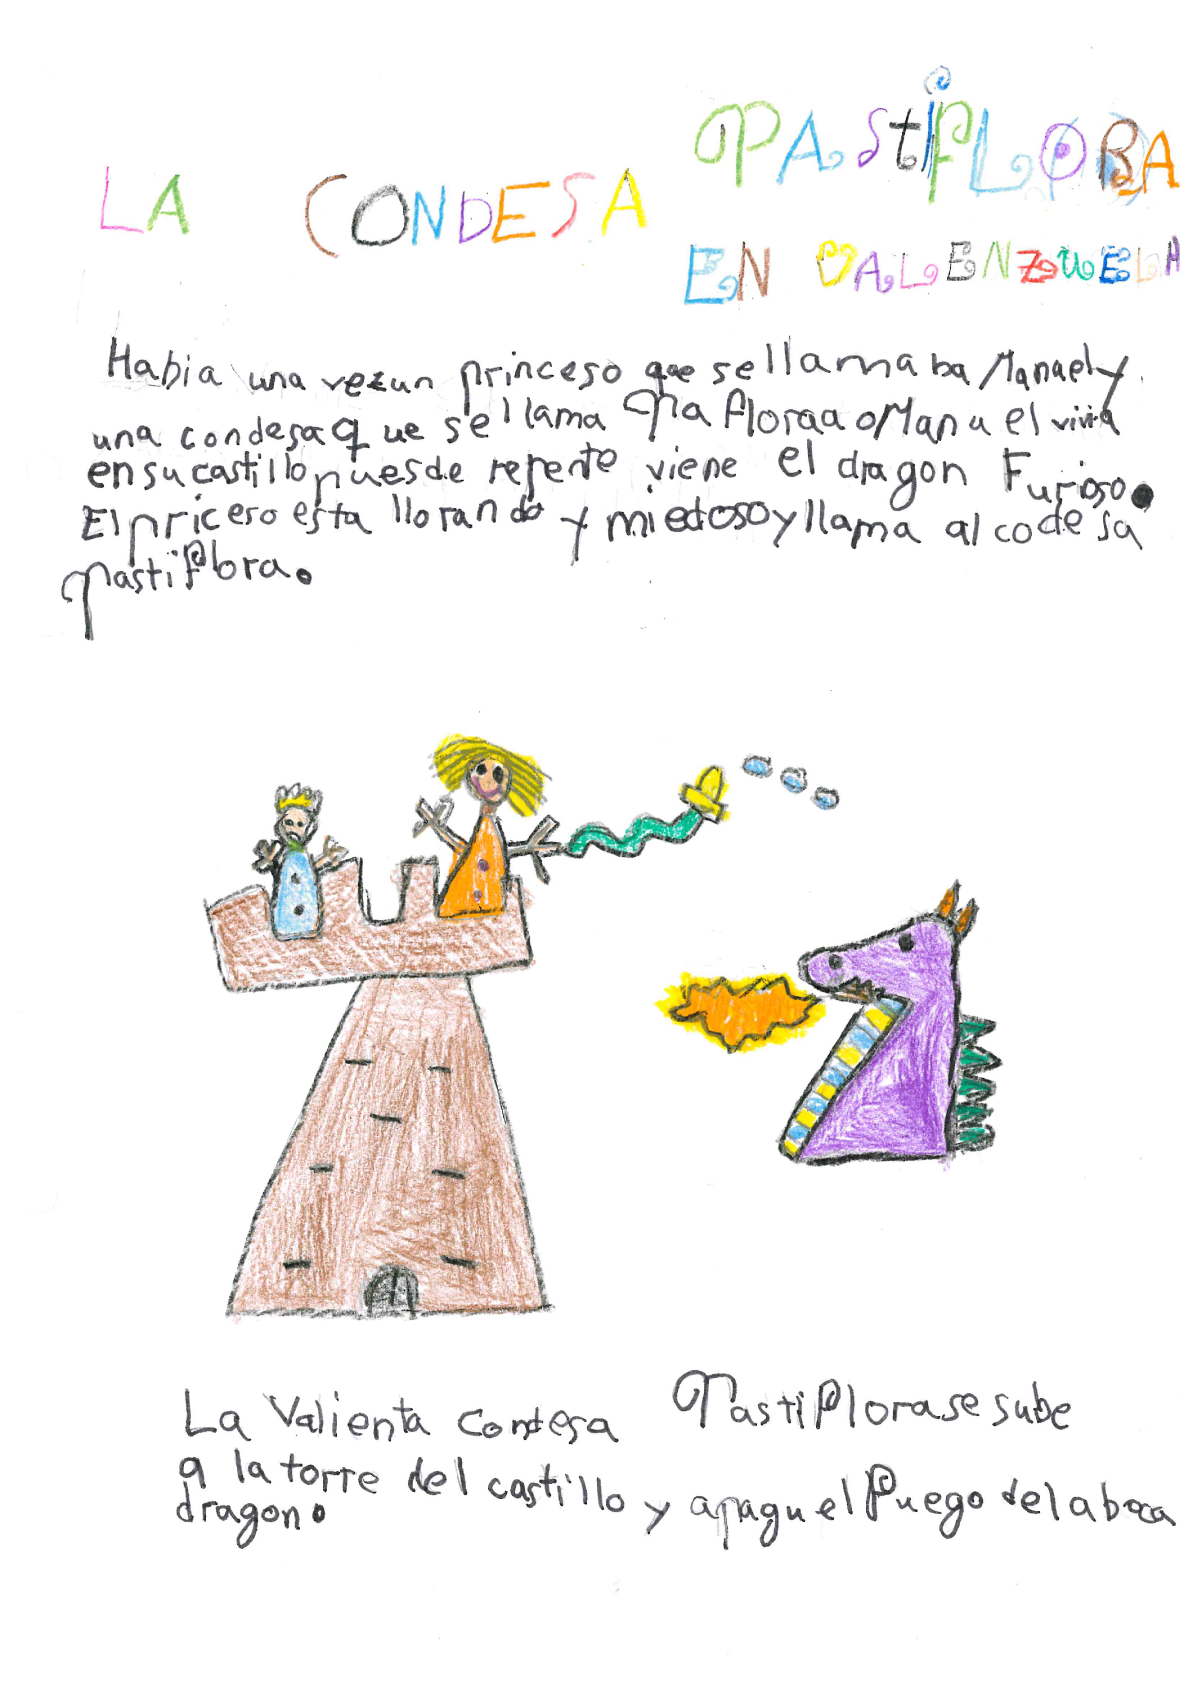 LA CONDESA PASTIFLORA
EN VALENZUELA
Habia una vez un princeso que se llamaba Manuel y
una condesa que se llama Pafloraa o Manuel vivia
en su castillo pues de repente viene el dragon Furioso.
El pricero esta llorando y miedoso y llama al codesa
Pastiflora.
La Valienta Condesa Pastiflora se sube
a la torre del castillo y apagu el fuego de la boca
dragon.